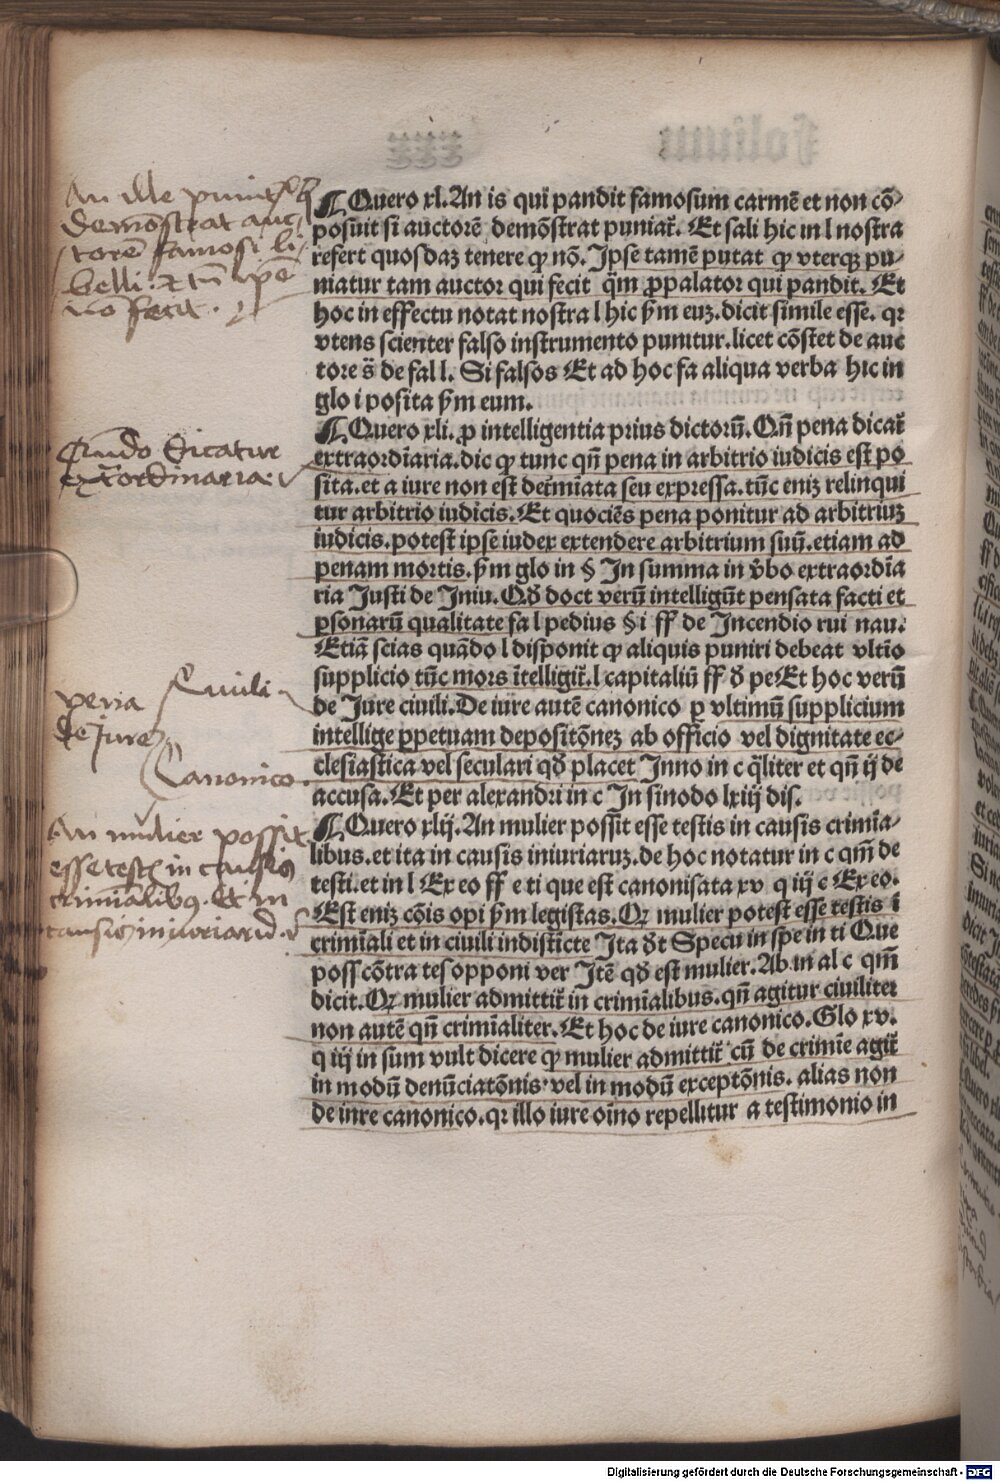 An ille puniatur qui
demonstrat auc-
torē famosi li-
belli: et tn̄ ip̄e
nō fecit.
¶ Quero xl. An is qui pandit famosum carmē et non cō-
posuit si auctorē demōstrat puniat̄. Et sali hic in l nostra
refert quosdaz tenere qꝫ nō. Ipse tamē putat qꝫ vterqꝫ pu-
niatur tam auctor qui fecit q̄m ꝓpalator qui pandit. Et
hoc in effectu notat nostra l hic ẜm euꝫ. dicit simile esse. qꝛ
vtens scienter falso instrumento punitur. licet cōstet de auc
tore s̄ de fal l. Si falsos Et ad hoc fa aliqua verba hic in
glo i posita ẜm eum.
Quādo dicatur
extraordinaria
¶ Quero xli. ꝓ intelligentia prius dictorū. Qn̄ pena dicat̄
extraordīaria. dic qꝫ tunc qn̄ pena in arbitrio iudicis est po
sita. et a iure non est det̄mīata seu expressa. tūc eniꝫ relinqui
tur arbitrio iudicis. Et quociēs pena ponitur ad arbitriuꝫ
iudicis. potest ipse iudex extendere arbitrium suū. etiam ad
penam mortis. ẜm glo in § In summa in v̄bo extraordīa
ria Iusti de Iniu. Qd̄ doct verū intelligūt pensata facti et
ꝑsonarū qualitate fa l pedius § i ff de Incendio rui nau.
Etiā scias quādo l disponit qꝫ aliquis puniri debeat vltīo
supplicio tūc mors ītelligit̄. l capitaliū ff d̄ pe Et hoc verū
de Iure ciuili. De iure autē canonico ꝑ vltimū supplicium
intellige ꝑpetuam depositōneꝫ ab officio vel dignitate ec-
clesiastica vel seculari qd̄ placet Inno in c q̄liter et qn̄ ij de
accusa. Et per alexandri in c In sinodo lxiij dis.
pena
de Jure
Ciuili
Canonico
An mulier possit
esse testis in causis
criminalibus. Et in
causis iniuriarū.
¶ Quero xlij. An mulier possit esse testis in causis crimīa-
libus. et ita in causis iniuriaruꝫ. de hoc notatur in c qm̄ de
testi. et in l Ex eo ff e ti que est canonisata xv q iij c Ex eo.
Est eniꝫ cōis opi ẜm legistas. Qꝛ mulier potest esse testis ī
crimīali et in ciuili indisticte Ita d̄t Specu in spe in ti Que
poss cōtra tes opponi ver Itē qd̄ est mulier. Ab in al c qm̄
dicit. Qꝛ mulier admittit̄ in crimīalibus. qn̄ agitur ciuiliter
non autē qn̄ crimīaliter. Et hoc de iure canonico. Glo xv.
q iij in sum vult dicere qꝫ mulier admittit̄ cū de crimīe agit̄
in modū denūciatōnis vel in modū exceptōnis. alias non
de iure canonico. qꝛ illo iure oīno repellitur a testimonio in
Digitalisierung gefördert durch die Deutsche Forschungsgemeinschaft - DFG